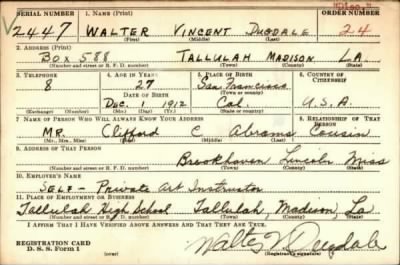 SERIAL NUMBER 1. NAME (Print) "Disc." ORDER NUMBER
V 2447 WALTER VINCENT DUGDALE 24
(First) (Middle) (Last)
2. ADDRESS (Print)
BOX 588 TALLULAH MADISON LA.
(Number and street or R. F. D. number) (Town) (County) (State)
3. TELEPHONE 4. AGE IN YEARS 5. PLACE OF BIRTH 6. COUNTRY OF CITIZENSHIP
8 27 San Francisco
DATE OF BIRTH (Town or county)
DEC. 1 1912 Cal. U.S.A.
(Exchange) (Number) (Mo.) (Day) (Yr.) (State or country)
7. NAME OF PERSON WHO WILL ALWAYS KNOW YOUR ADDRESS RELATIONSHIP OF THAT PERSON
MR. Clifford C Abrams Cousin
(Mr., Mrs., Miss) (First) (Middle) (Last)
9. ADDRESS OF THAT PERSON
Brookhaven Lincoln Miss
(Number and street or R. F. D. number) (Town) (County) (State)
10. EMPLOYER'S NAME
SELF - Private Art Instructor
11. PLACE OF EMPLOYMENT OR BUSINESS
Tallulah High School Tallulah, Madison, La
(Number and street or R. F. D. number) (Town) (County) (State)
I AFFIRM THAT I HAVE VERIFIED ABOVE ANSWERS AND THAT THEY ARE TRUE.
REGISTRATION CARD
D. S. S. Form 1 (over) Walter V. Dugdale
(Registrant's signature)